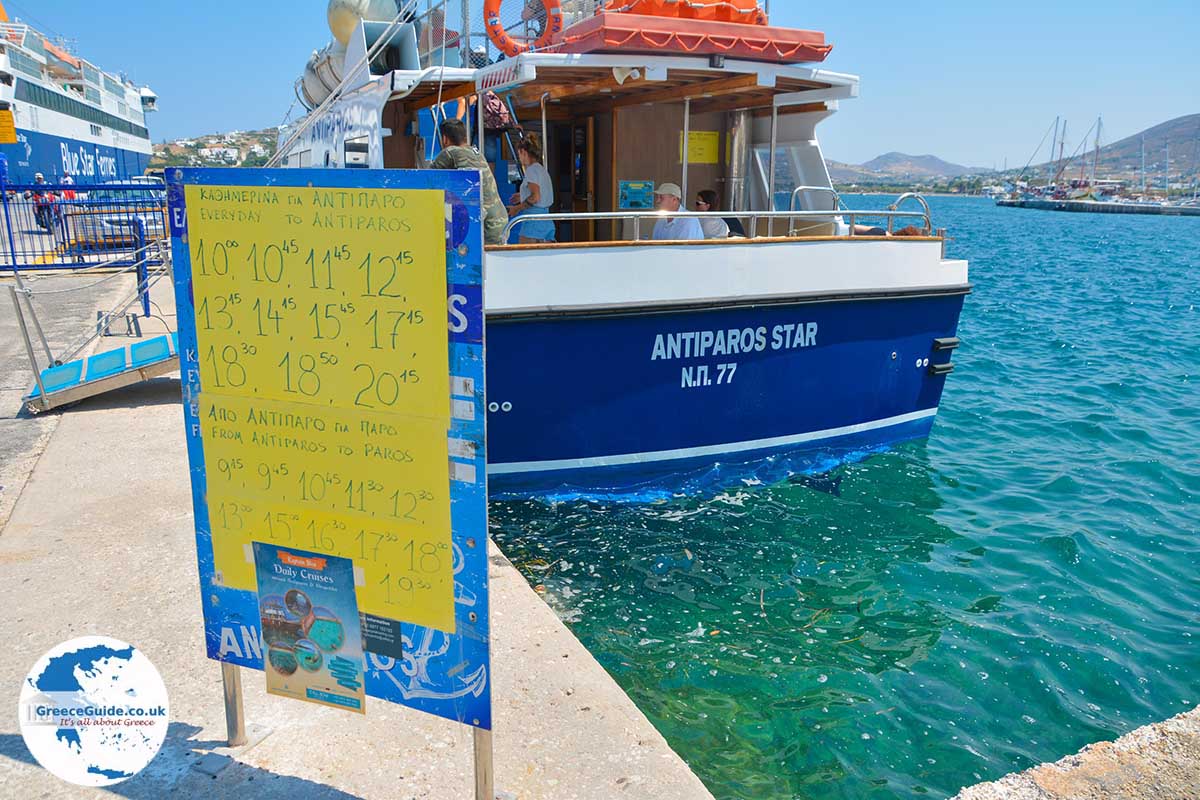 ΚΑΘΗΜΕΡΙΝΑ για ΑΝΤΙΠΑΡΟ
EVERYDAY TO ANTIPAROS
10⁰⁰, 10⁴⁵, 11⁴⁵, 12¹⁵,
13¹⁵, 14¹⁵, 15⁴⁵, 17¹⁵,
18³⁰, 18⁵⁰, 20¹⁵
ΑΠΟ ΑΝΤΙΠΑΡΟ για ΠΑΡΟ
FROM ANTIPAROS TO PAROS
9¹⁵, 9⁴⁵, 10⁴⁵, 11³⁰, 12³⁰,
13³⁰, 15⁰⁰, 16³⁰, 17³⁰, 18⁰⁰
19³⁰
Daily Cruises
ANTIPAROS STAR
Ν.Π. 77
Blue Star Ferries
GreeceGuide.co.uk
It's all about Greece